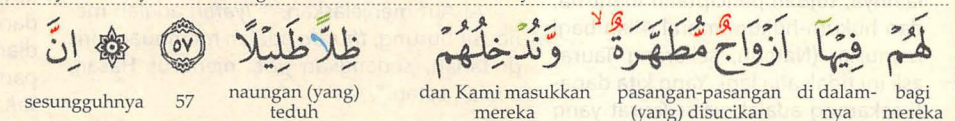 لَهُمْ فِيْهَآ اَزْوَاجٌ مُّطَهَّرَةٌ ۙ وَّنُدْخِلُهُمْ ظِلًّا ظَلِيْلًا ٥٧ ۞ اِنَّ
bagi mereka di dalam-nya pasangan-pasangan (yang) disucikan dan Kami masukkan mereka naungan (yang) teduh 57 sesungguhnya